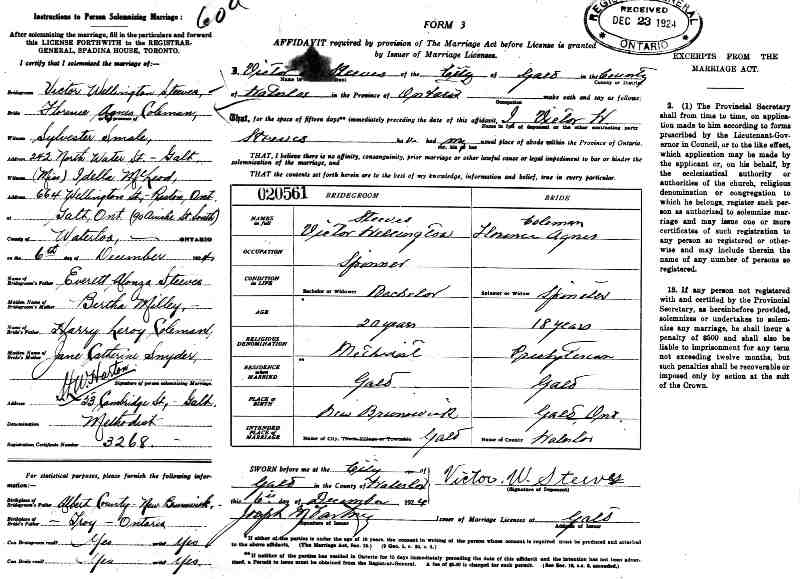 60a
Instructions to Person Solemnizing Marriage:
After solemnizing the marriage, fill in the particulars and forward
this LICENSE FORTHWITH to the REGISTRAR-
GENERAL, SPADINA HOUSE, TORONTO.
I certify that I solemnized the marriage of:
Bridegroom Victor Wellington Steeves,
Bride Florence Agnes Coleman,
Witness Sylvester Smale,
Address 242 North Water St - Galt
Witness (Miss) Idella McLeod,
Address 664 Wellington St, Preston, Ont.
at Galt, Ont
County of Waterloo, ONTARIO
on the 6th day of December 1924
Name of Bridegroom's Father Everett Alonza Steeves
Maiden Name of Bridegroom's Mother Bertha Milley,
Name of Bride's Father Harry Leroy Coleman,
Maiden Name of Bride's Mother Jane Catherine Snyder,
H.W. Harton
Signature of person solemnizing Marriage.
Address 23 Cambridge St, Galt.
Denomination Methodist
Registration Certificate Number 3268.
For statistical purposes, please furnish the following infor-
mation:—
Birthplace of Bridegroom's Father Albert County - New Brunswick,
Birthplace of Bride's Father - Troy - Ontario
Can Bridegroom read? Yes write Yes
Can Bride read? Yes write Yes
FORM 3
AFFIDAVIT required by provision of The Marriage Act before License is granted
by Issuer of Marriage Licenses.
I, Victor Steeves of the City of Galt in the County
Name in full County or District
of Waterloo in the Province of Ontario make oath and say as follows:
Occupation
That, for the space of fifteen days** immediately preceding the date of this affidavit, I Victor H.
Name in full of deponent or the other contracting party
Steeves had my usual place of abode within the Province of Ontario.
THAT, I believe there is no affinity, consanguinity, prior marriage or other lawful cause or legal impediment to bar or hinder the
solemnization of the marriage, and
THAT the contents set forth herein are to the best of my knowledge, information and belief, true in every particular.
020561 BRIDEGROOM BRIDE
NAMES in full Steeves Coleman
Victor Florence Agnes
OCCUPATION Spinner
CONDITION IN LIFE Bachelor or Widower Bachelor Spinster or Widow Spinster
AGE 20 years 18 years
RELIGIOUS DENOMINATION Methodist Presbyterian
RESIDENCE when MARRIED ** Galt Galt
PLACE of BIRTH New Brunswick Galt Ont.
INTENDED PLACE of MARRIAGE Name of City, Town Village or Township Galt Name of County Waterloo
SWORN before me at the City of
Galt in the County of Waterloo
this 6th day of December 1924
Victor W. Steeves
(Signature of Deponent)
Joseph McCartney Issuer of Marriage Licenses at Galt
Signature of Issuer Address of Issuer
*If either of the parties is under the age of 18 years, the consent in writing of the person whose consent is required must be produced and attached
to the above affidavit. (The Marriage Act, Sec. 15.)
**If neither of the parties has resided in Ontario for 15 days immediately preceding the date of this affidavit and the intention has not been adver-
tised, a Permit to issue must be obtained from the Registrar-General. A fee of $5.00 is charged for such permit.
REGISTRAR GENERAL
RECEIVED
DEC 23 1924
* ONTARIO *
EXCERPTS FROM THE
MARRIAGE ACT.
2. (1) The Provincial Secretary
shall from time to time, on appli-
cation made to him according to forms
prescribed by the Lieutenant-Gov-
ernor in Council, or to the like effect,
which application may be made by
the applicant or, on his behalf, by
the ecclesiastical authority or
authorities of the church, religious
denomination or congregation to
which he belongs, register such per-
son as authorized to solemnize mar-
riage and may issue one or more
certificates of such registration to
any person so registered or other-
wise and may include therein the
name of any number of persons so
registered.
13. If any person not registered
with and certified by the Provincial
Secretary, as hereinbefore provided,
solemnizes or undertakes to solem-
nize any marriage, he shall incur a
penalty of $500 and shall also be
liable to imprisonment for any term
not exceeding twelve months, but
such penalties shall be recoverable or
imposed only by action at the suit
of the Crown.